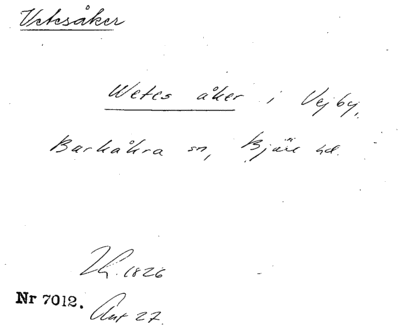 Vetesåker
Wetes åker i Vejby,
Barkåkra sn, Bjäre hd.
1826
Nr 7012.
27.